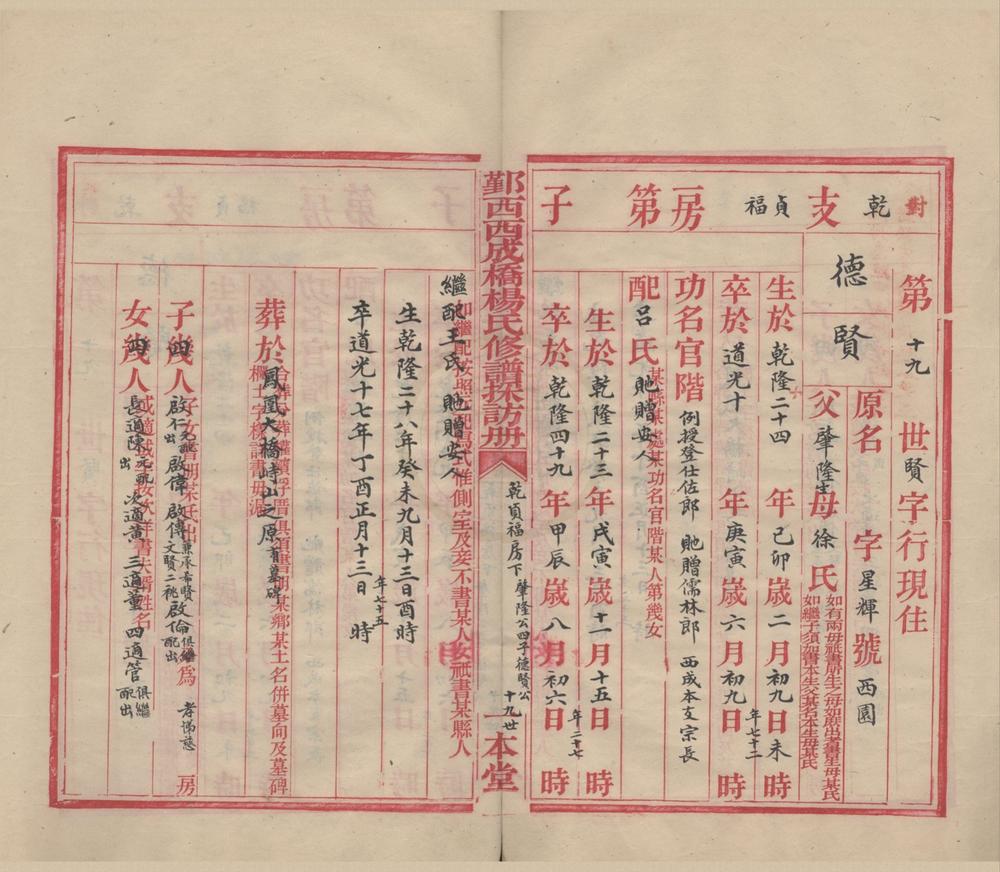 對乾支貞福房第子
第十九世賢字行現住
德賢
原名 字星輝號西園
父肇隆生母徐氏
如有兩毋祇書所生之毋如庶出者書星毋某氏
如繼子須加書本生父某名本生毋某氏
生於乾隆二十四年己卯歲二月初九日未時
卒於道光十年庚寅歲六月初九日時
年七十二
功名官階例授登仕佐郎 貤贈儒林郎 西成本支宗長
配呂氏貤贈安人
某縣某處某功名官階某人第幾女
生於乾隆二十三年戊寅歲十一月十五日時
卒於乾隆四十九年甲辰歲八月初六日時
年二十七
鄞西西成橋楊氏修譜採訪册
乾貞福房下 肇隆公四子德賢公
十九世
一本堂
繼配王氏貤贈安人
如繼配按照元配寫式惟側室及妾不書某人女祇書某縣人
生乾隆二十八年癸未九月十三日酉時
卒道光十七年丁酉正月十三日時
年七十五
葬於鳳凰大橋峙山之原有墓碑
子四人啟仁元配出啟偉 啟傳兼承希賢文賢二祧啟倫俱繼配出 為孝悌慈房
女四人長適陳元配出次適黃 三適董 四適管俱繼配出